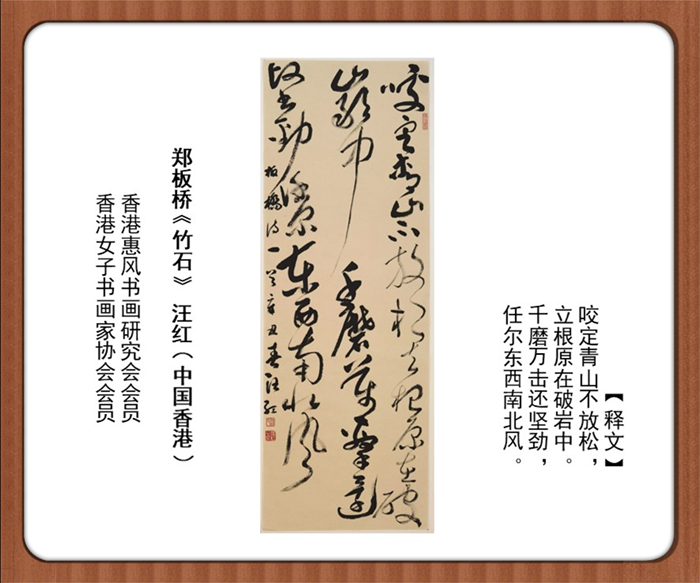 【释文】
咬定青山不放松，
立根原在破岩中。
千磨万击还坚劲，
任尔东西南北风。
咬定青山不放松立根原在破
巖中千磨萬擊還
堅勁任爾東西南北風
板橋詩一首辛丑春汪红
郑板桥《竹石》 汪红（中国香港）
香港惠风书画研究会会员
香港女子书画家协会会员